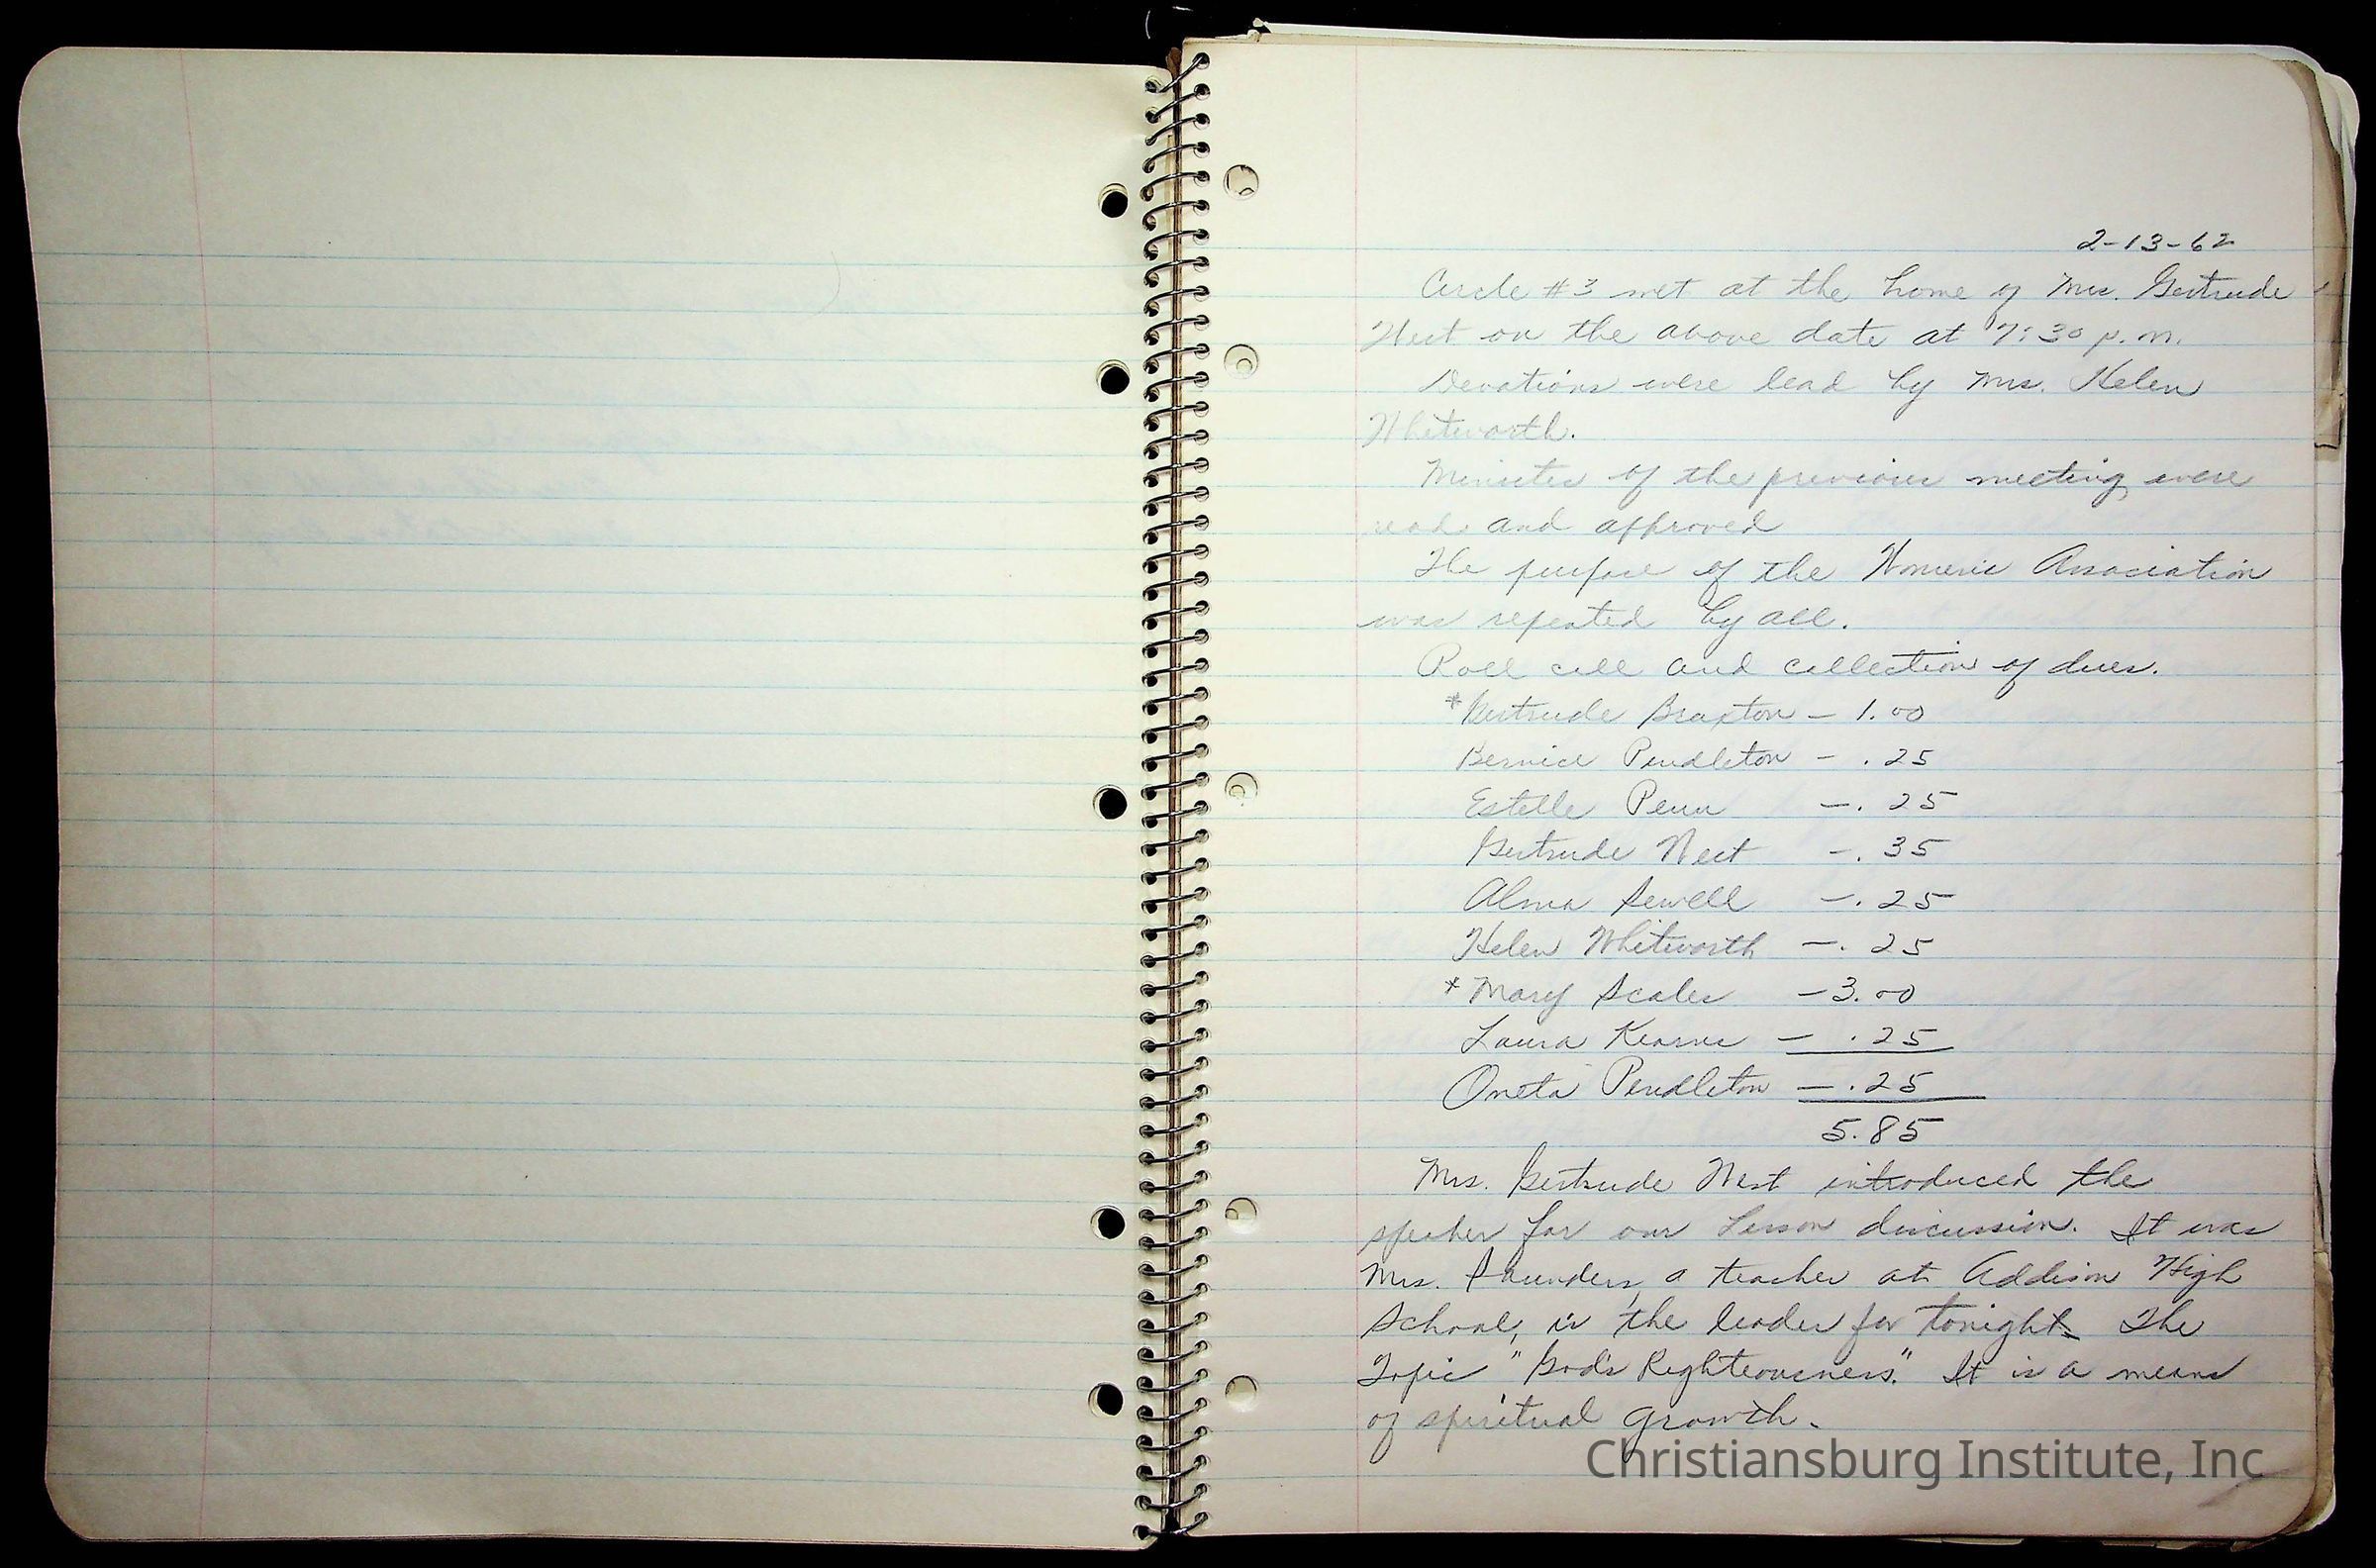 2-13-62
Circle #3 met at the home of Mrs. Gertrude
West on the above date at 7:30 p.m.
Devotions were lead by Mrs. Helen
Whitworth.
Minutes of the previous meeting were
read and approved
The purpose of the Womens Association
was repeated by all.
Roll call and collection of dues.
*Gertrude Braxton - 1.00
Bernice Pendleton - .25
Estelle Penn -. 25
Gertrude West -. 35
Alma Sewell -. 25
Helen Whitworth -. 25
*Mary Scales -3.00
Laura Kearns - .25
Oneta Pendleton - .25
5.85
Mrs. Gertrude West introduced the
speaker for our Lesson discussion. It was
Mrs. Saunders, a teacher at Addison High
School, is the leader for tonight. The
Topic "God's Righteousness." It is a means
of spiritual growth.
Christiansburg Institute, Inc